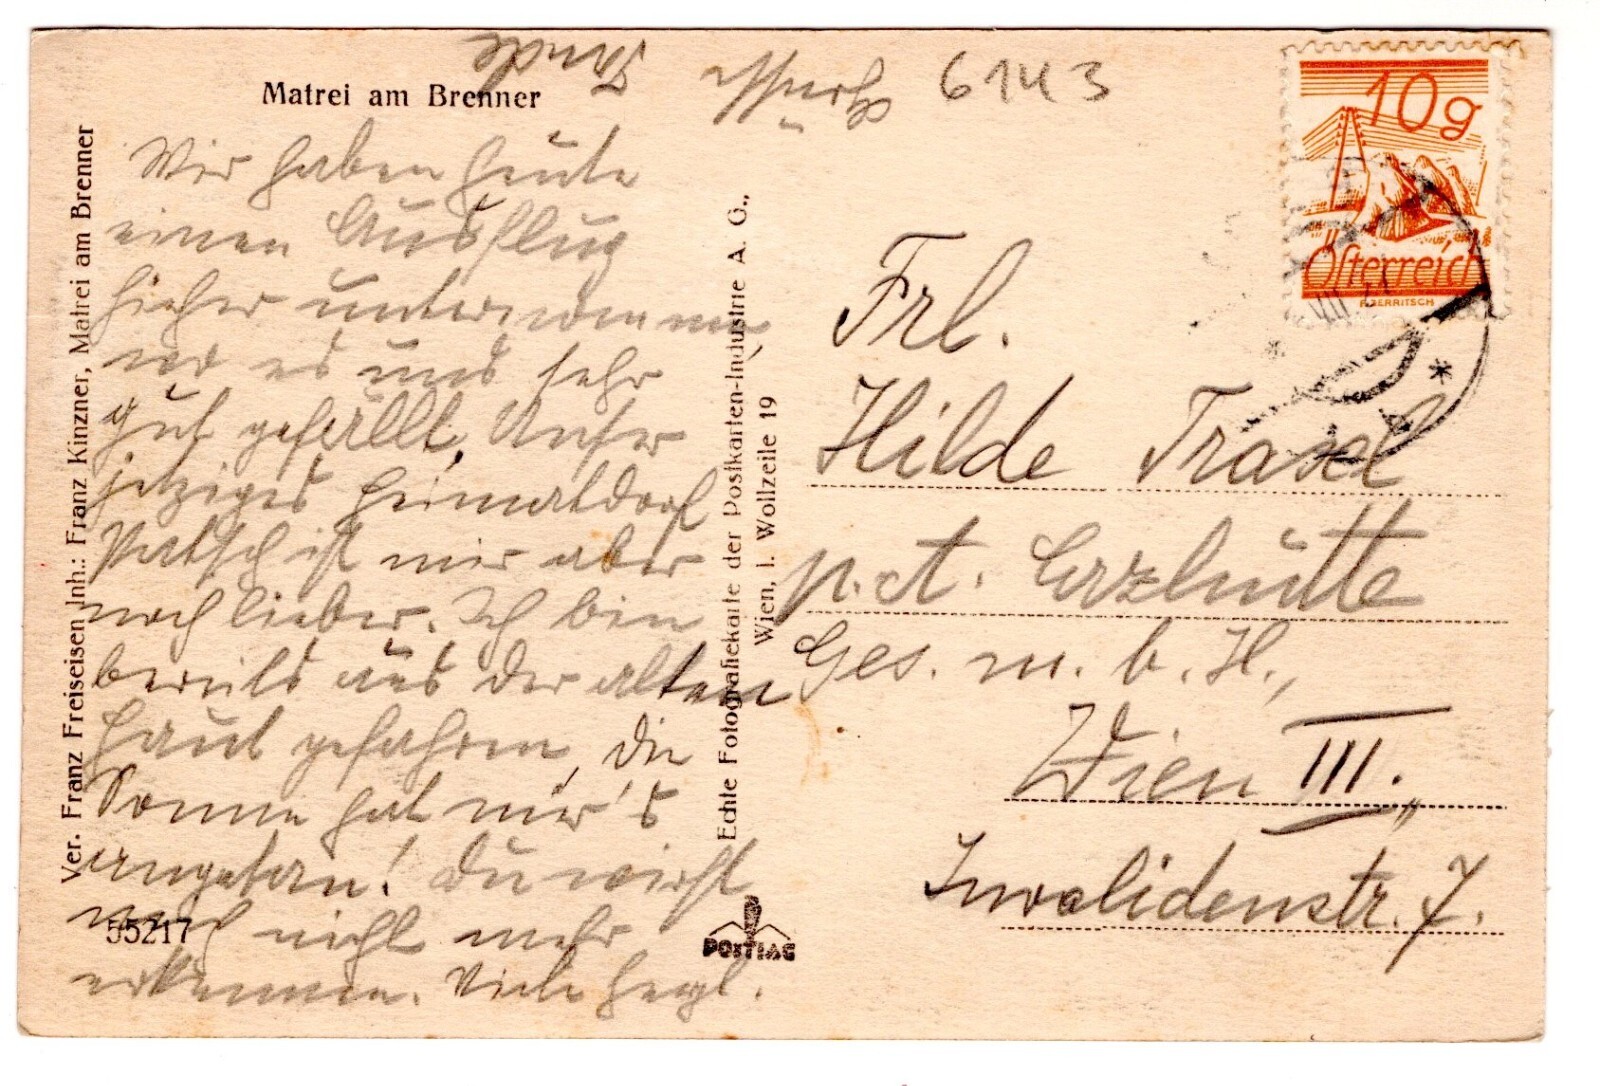 Matrei am Brenner
6143
Wir haben heute
einen Ausflug
hieher unternommen
wo es uns sehr
gut gefällt. Unser
jetziges Heimatdorf
Patsch ist mir aber
noch lieber. Ich bin
bereits aus der alten
Haut gefahren, die
Sonne hat mir's
angetan! Du wirst
mich nicht mehr
erkennen. Viele herzl.
Grüsse
Ver. Franz Freiseisen Inh.: Franz Kinzner, Matrei am Brenner
55217
Echte Fotografiekarte der Postkarten-Industrie A. G.,
Wien, I. Wollzeile 19
POSTIAG
10g
Österreich
Frl.
Hilde Traxl
p. A. Erzhütte
Ges. m. b. H.,
Wien III.,
Invalidenstr. 7.